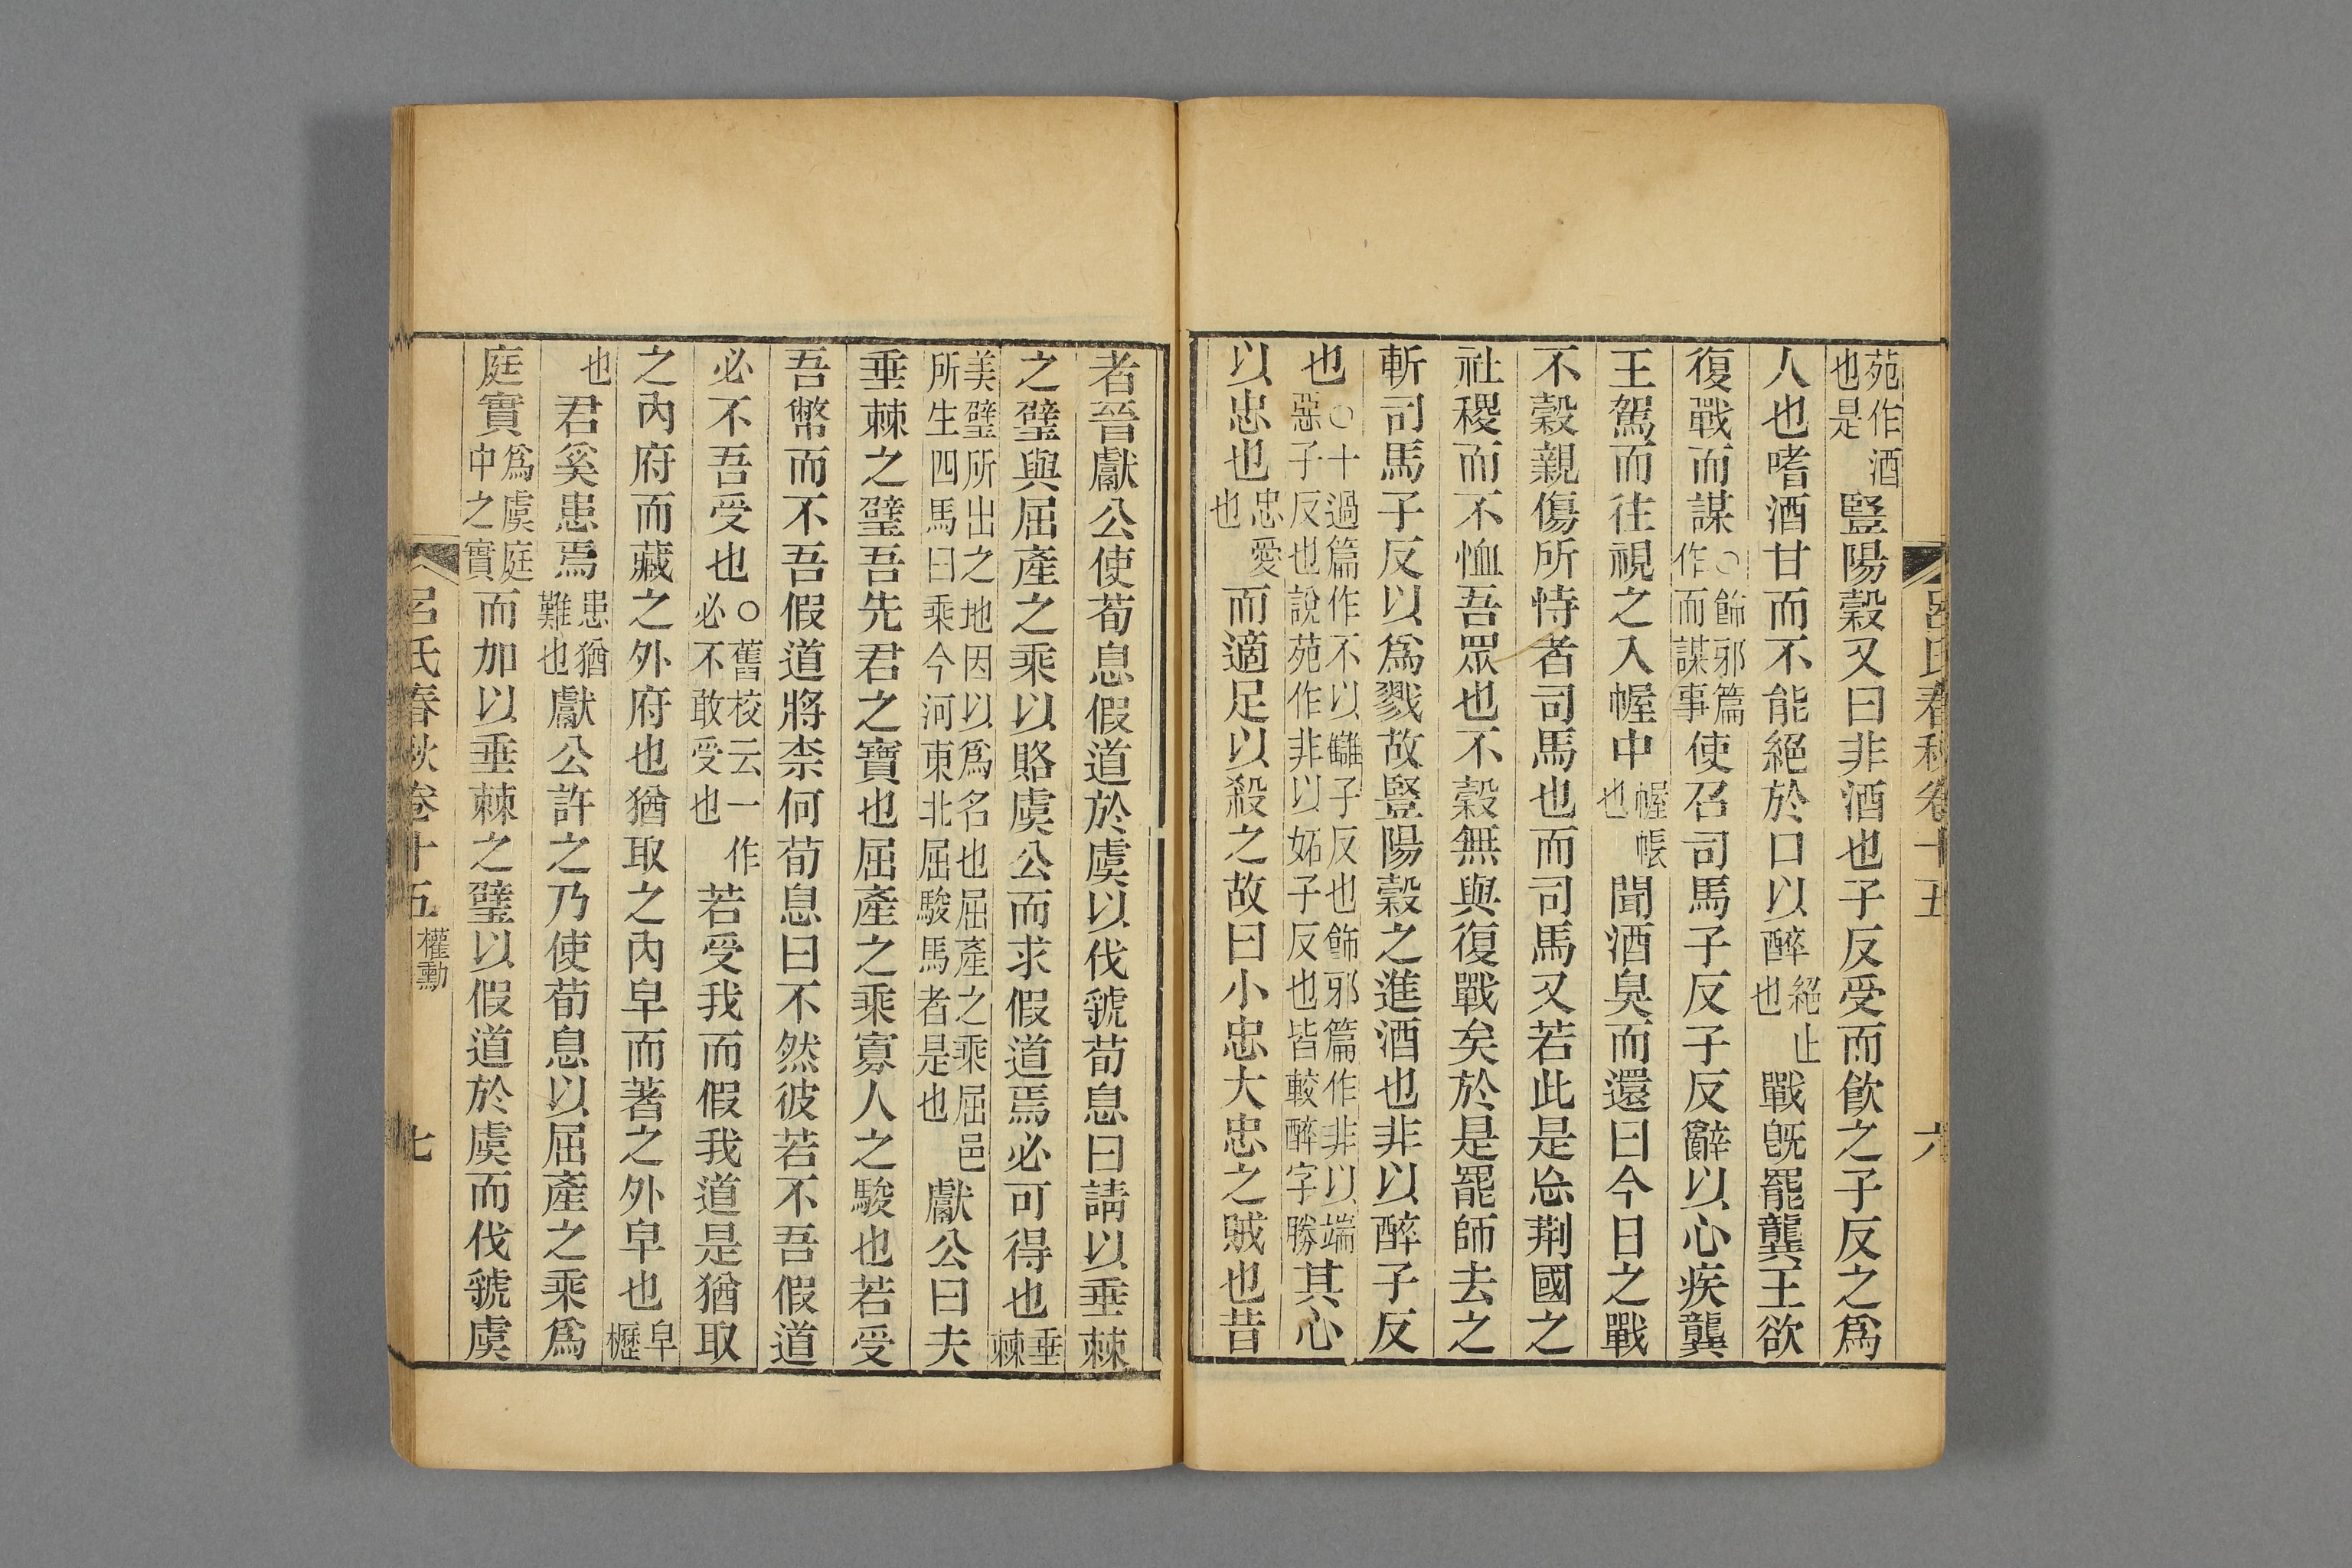 呂氏春秋卷十五 六
苑作酒也是豎陽穀又曰非酒也子反受而飮之子反之爲
人也嗜酒甘而不能絕於口以醉絕止也戰旣罷龔王欲
復戰而謀○飾邪篇作而謀事使召司馬子反子反辭以心疾龔
王駕而往視之入幄中幄帳也聞酒臭而還曰今日之戰
不穀親傷所恃者司馬也而司馬又若此是忘荆國之
社稷而不恤吾眾也不穀無與復戰矣於是罷師去之
斬司馬子反以爲戮故豎陽穀之進酒也非以醉子反
也○十過篇作不以讎子反也飾邪篇作非以端惡子反也說苑作非以妬子反也皆較醉字勝其心
以忠也忠愛也而適足以殺之故曰小忠大忠之賊也昔
者晉獻公使荀息假道於虞以伐虢荀息曰請以垂棘
之璧與屈產之乘以賂虞公而求假道焉必可得也垂棘
美璧所出之地因以爲名也屈產之乘屈邑所生四馬曰乘今河東北屈駿馬者是也獻公曰夫
垂棘之璧吾先君之寶也屈產之乘寡人之駿也若受
吾幣而不吾假道將柰何荀息曰不然彼若不吾假道
必不吾受也○舊校云一作必不敢受也若受我而假我道是猶取
之內府而藏之外府也猶取之內皁而著之外皁也皁櫪
也君奚患焉患猶難也獻公許之乃使荀息以屈產之乘爲
庭實爲虞庭中之實而加以垂棘之璧以假道於虞而伐虢虞
呂氏春秋卷十五 權勳 七